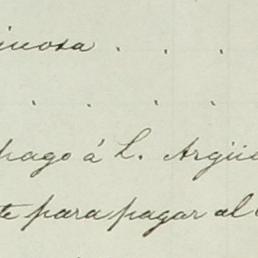 pago á L. Argüe
te para pagar al